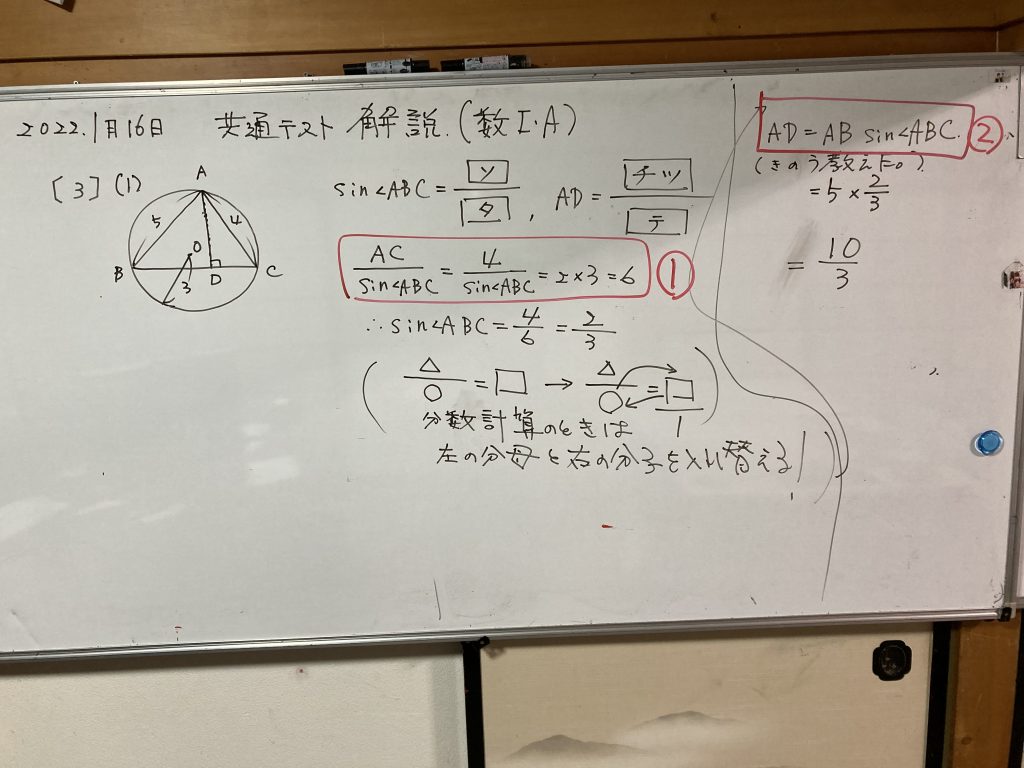 2022.1月16日 共通テスト 解説.(数I・A)
[3](1)
A
5
4
O
3
B
D
C
sin∠ABC = ソ/タ , AD = チツ/テ
AC/sin∠ABC = 4/sin∠ABC = 2×3 = 6 ①
∴ sin∠ABC = 4/6 = 2/3
( △/○ = □ → △/○ = □/1 )
分数計算のときは
左の分母と右の分子を入れ替える
AD = AB sin∠ABC. ②
(きのう教えた。)
= 5 × 2/3
= 10/3